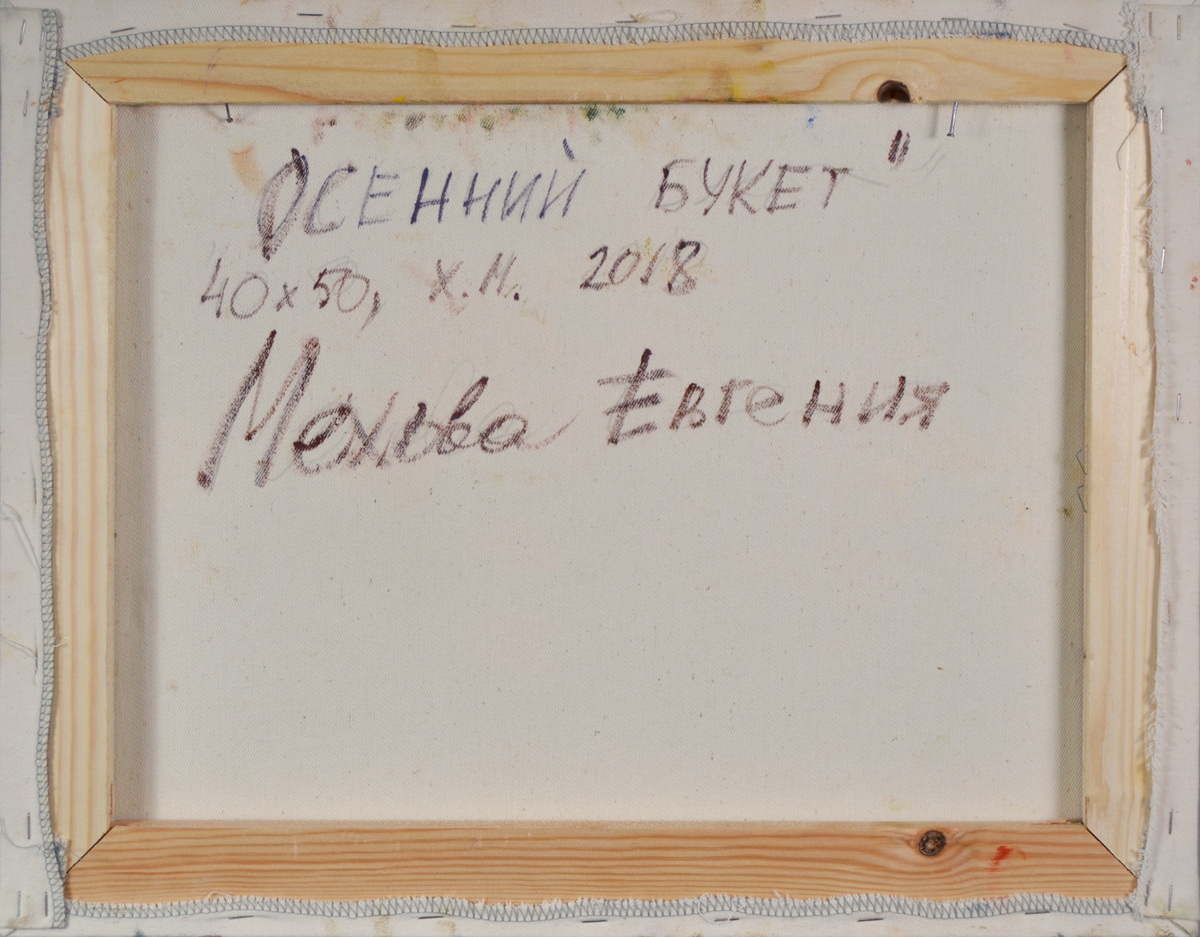 ОСЕННИЙ БУКЕТ"
40x50, Х.М. 2018
Мохова Евгения